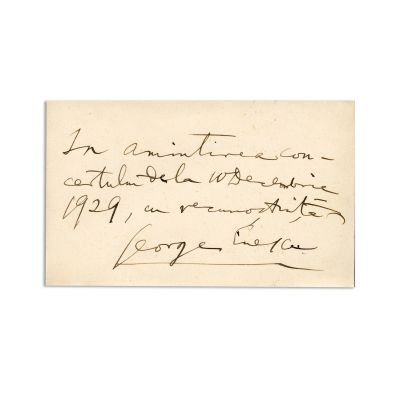 In amintirea con-
certului de la 10 Decembrie
1929, cu recunoștință
George Enescu